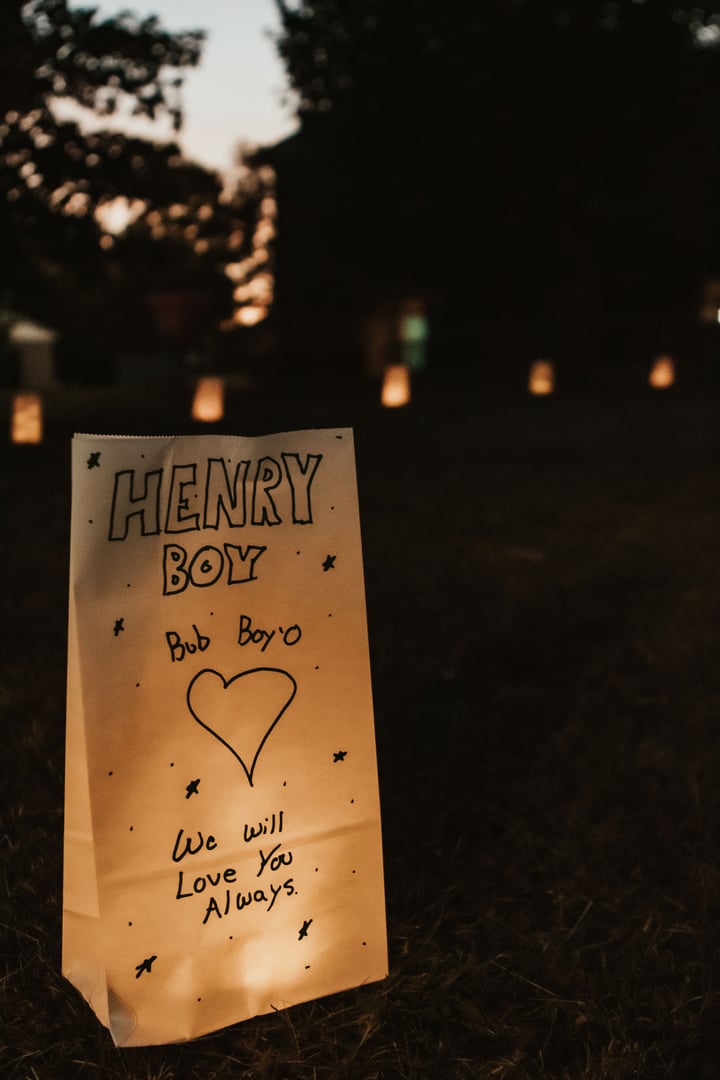 HENRY
BOY
Bub Boy'O
We will
Love You
Always.